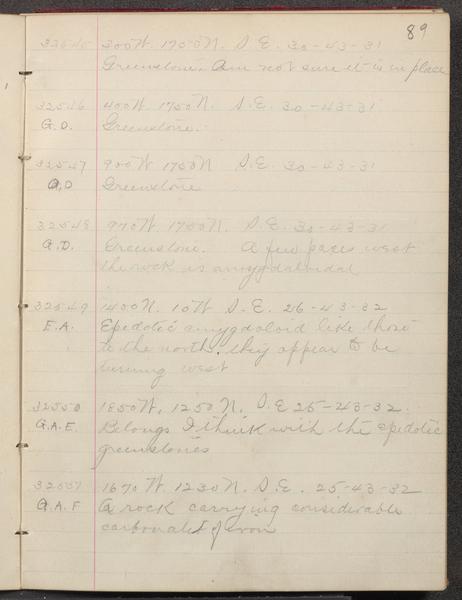 89
32545 300 W. 1750 N. S.E. 30-43-31
Greenstone. Am not sure it is in place
32546 400 W. 1750 N. S.E. 30-43-31
G.D. Greenstone.
32547 900 W 1750 N S.E. 30-43-31
G.D Greenstone
32548 970 W. 1750 N. S.E. 30-43-31
G.D. Greenstone. A few paces west
the rock is amygdaloidal
32549 1400 N. 10 W S.E. 26-43-32
E.A. Epidotic amygdaloid like those
to the north. they appear to be
turning west
32550 1850 W. 1250 N. S.E 25-43-32.
G.A.E. Belongs I think with the epidotic
greenstones
32551 1670 W. 1230 N. S.E. 25-43-32
G.A.F A rock carrying considerable
carbonate of iron